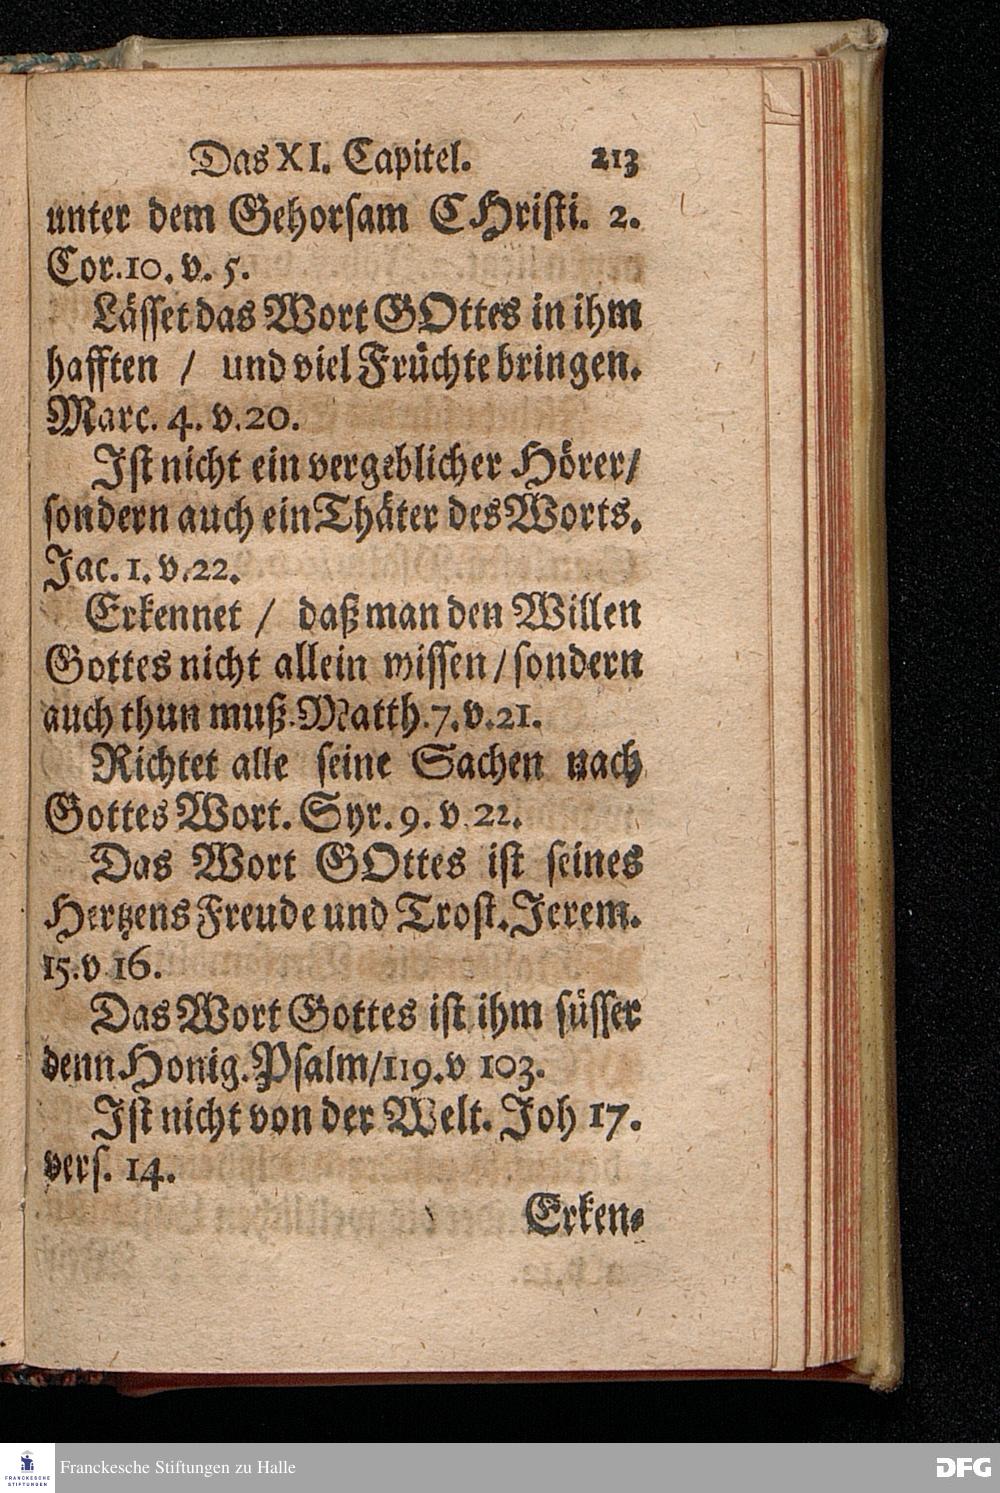 Das XI. Capitel. 213
unter dem Gehorsam CHristi. 2.
Cor. 10. v. 5.
Lässet das Wort GOttes in ihm
hafften / und viel Früchte bringen.
Marc. 4. v. 20.
Ist nicht ein vergeblicher Hörer/
sondern auch ein Thäter des Worts.
Jac. 1. v. 22.
Erkennet / daß man den Willen
Gottes nicht allein wissen / sondern
auch thun muß. Matth. 7. v. 21.
Richtet alle seine Sachen nach
Gottes Wort. Syr. 9. v. 22.
Das Wort GOttes ist seines
Hertzens Freude und Trost. Jerem.
15. v 16.
Das Wort Gottes ist ihm süsser
denn Honig. Psalm/119. v 103.
Ist nicht von der Welt. Joh 17.
vers. 14.
Erken-
FRANCKESCHE
STIFTUNGEN
Franckesche Stiftungen zu Halle
DFG